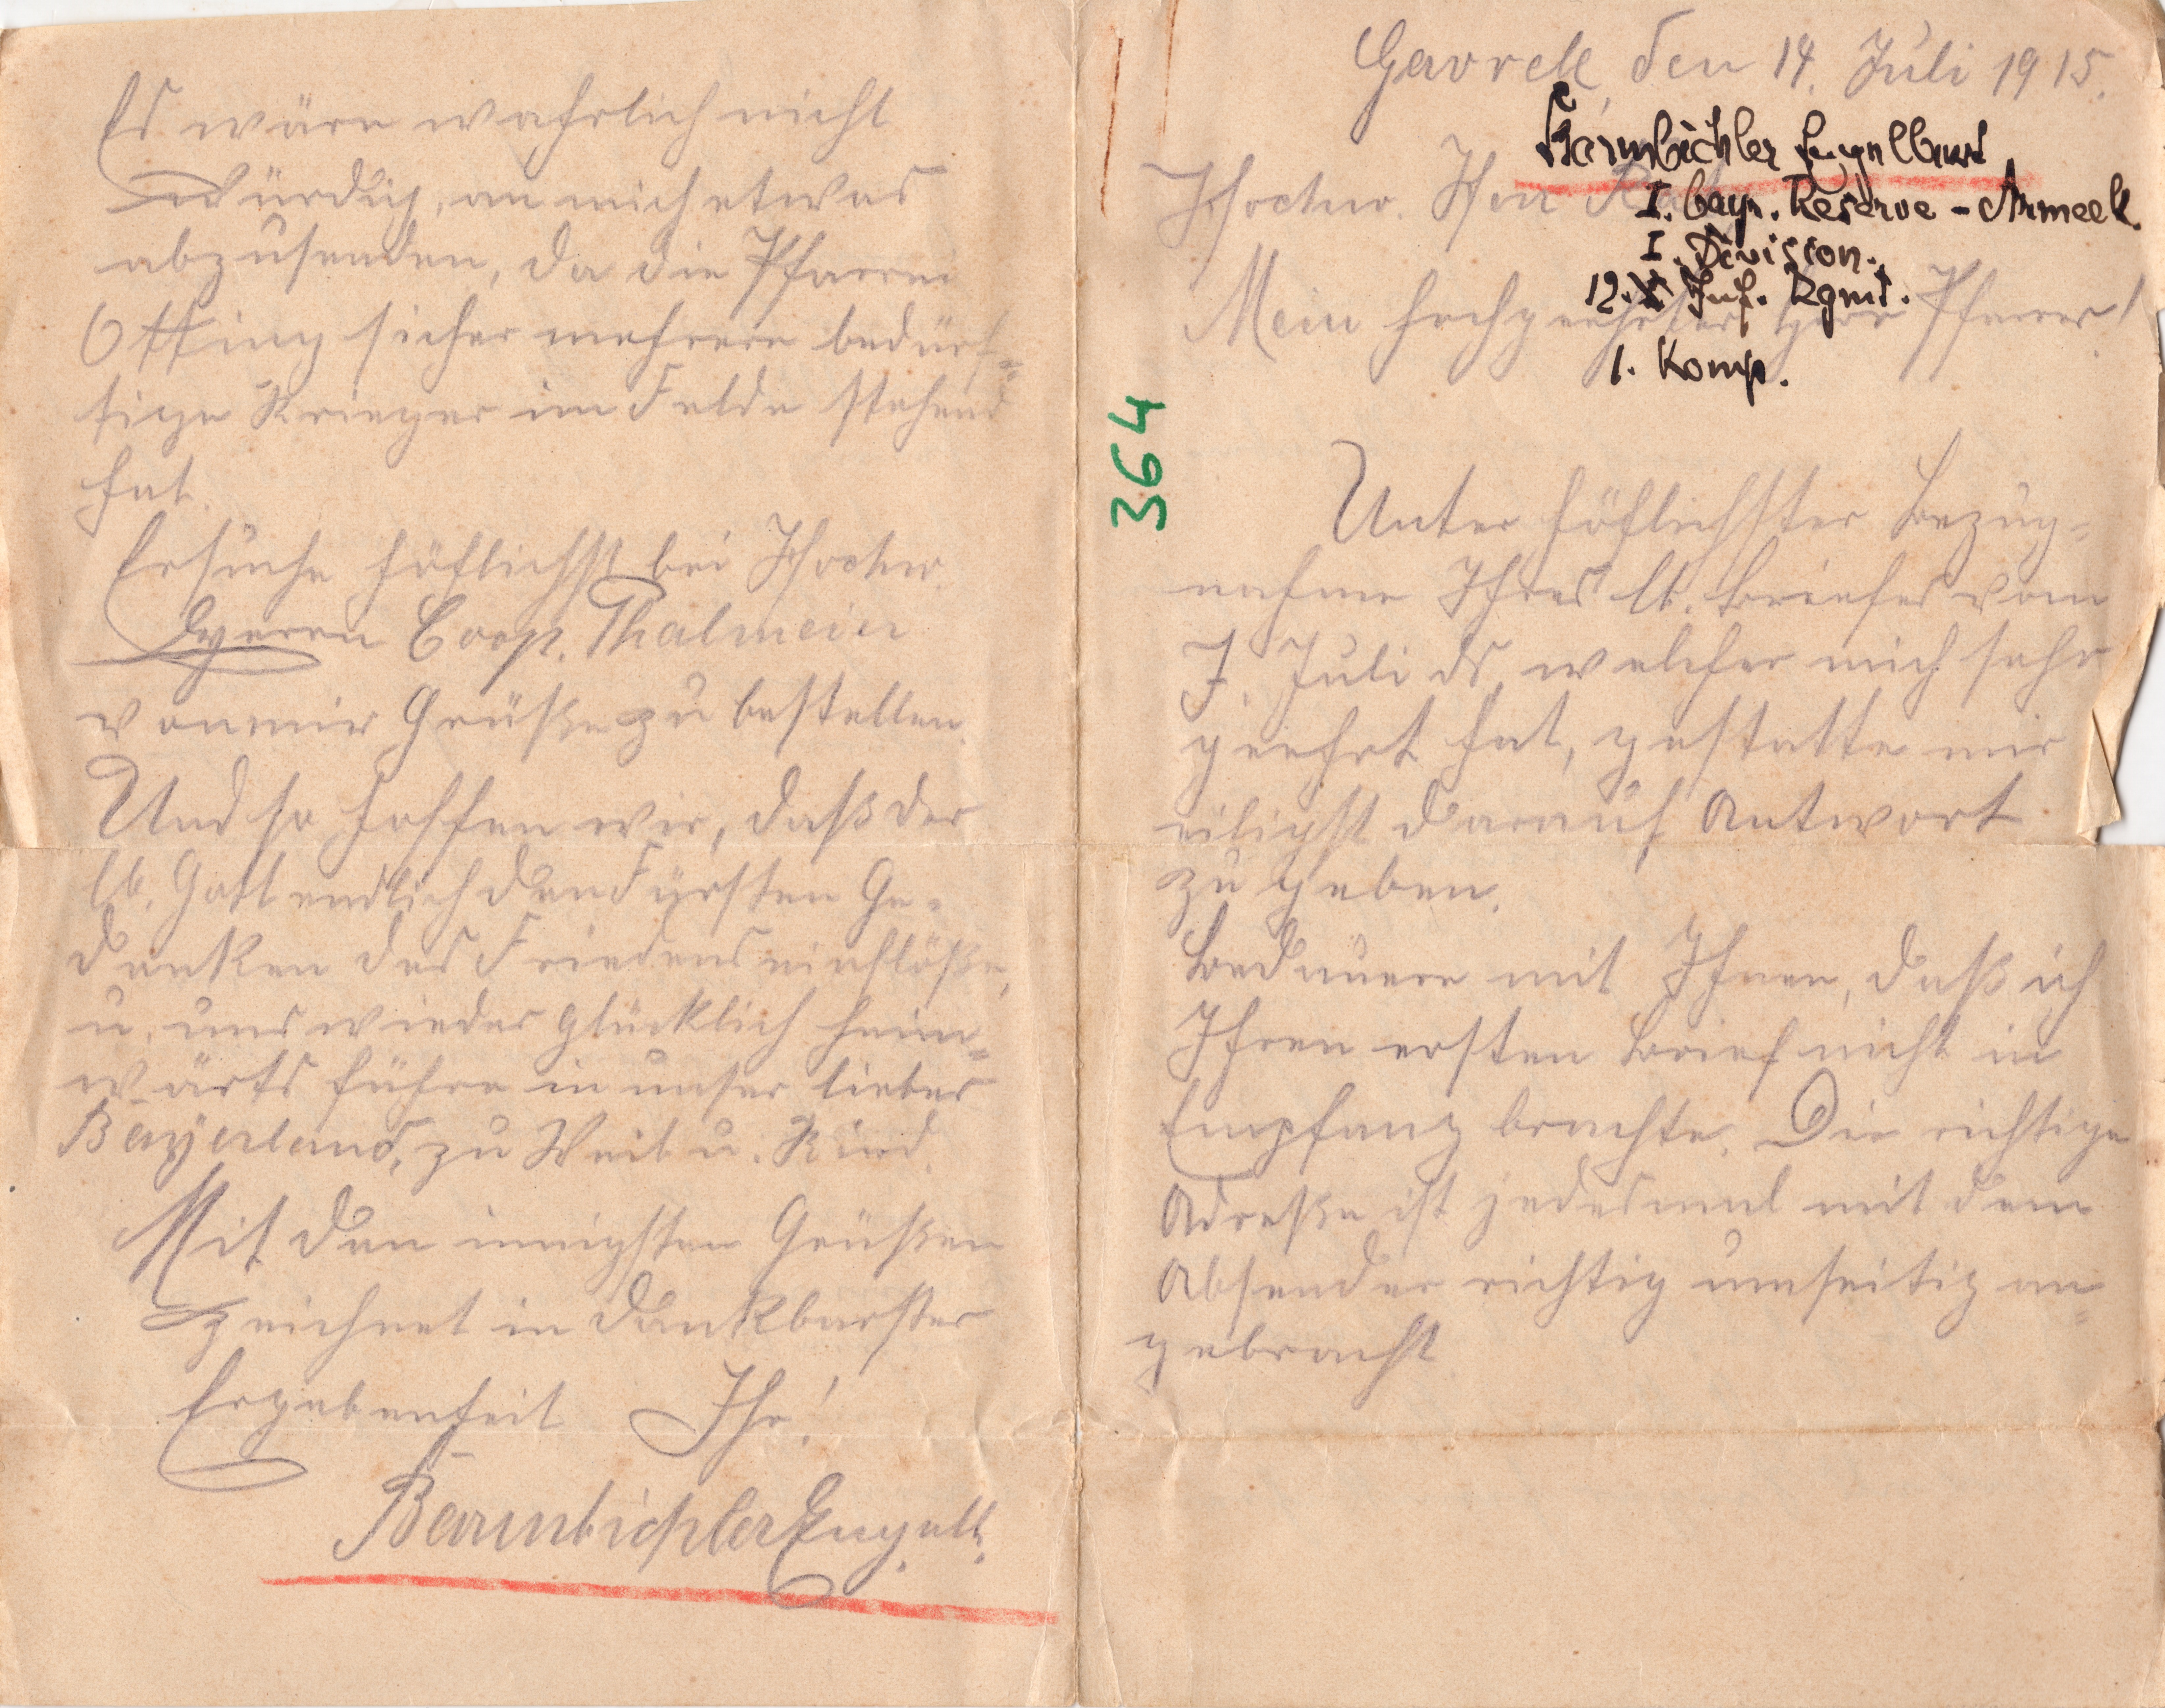 Gavrell, den 14. Juli 1915.
Barmbichler Engelbert
I. bayr. Reserve-Armeek.
I. Division.
12. Inf. Rgmt.
1. Komp.
Hochw. Herr
Mein hochgeehrter Herr Pfarrer!
364
Unter höflichster Bezug-
nahme Ihres lb. Briefes vom
7. Juli ds, welcher mich sehr
geehrt hat, gestatte mir
eiligst darauf Antwort
zu geben.
Bedauere mit Ihnen, daß ich
Ihren ersten Brief nicht in
Empfang brachte. Die richtige
Adreße ist jedesmal mit dem
Absender richtig umseitig an-
gebracht
Es wäre wahrlich nicht
würdig, an mich etwas
abzusenden, da die Pfarrei
Otting sicher mehrere bedürf-
tige Krieger im Felde stehend
hat.
Ersuche höflichst bei Hochw.
Herrn Coop. Thalmeier
von mir Grüße zu bestellen.
Und so hoffen wir, daß der
lb. Gott endlich den Fürsten Ge-
danken des Friedens einflöße,
u. uns wieder glücklich heim-
wärts führe in unser liebes
Bayerland, zu Weib u. Kind.
Mit den innigsten Grüßen
zeichnet in dankbarster
Ergebenheit Ihr!
Barmbichler Engelb.